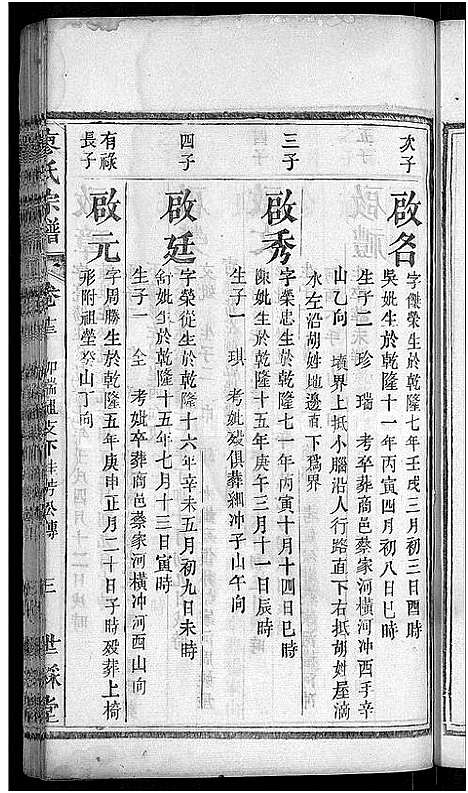 次子
啟名
字傑榮生於乾隆七年壬戌三月初三日酉時
吳妣生於乾隆十一年丙寅四月初八日巳時
生子二 珍 瑞 考卒葬商邑蔡家河橫河冲西手辛
山乙向 墳界上抵小腦沿人行路直下右抵胡姓屋滴
水左沿胡姓地邊直下爲界
三子
啟秀
字榮忠生於乾隆十一年丙寅十月十四日巳時
陳妣生於乾隆十五年庚午三月十一日辰時
生子一 琪 考妣歿俱葬細冲子山午向
四子
啟廷
字榮從生於乾隆十六年辛未五月初九日未時
妣生於乾隆十五年七月十三日寅時
生子一 全 考妣卒葬商邑蔡家河橫冲河酉山向
有祿
長子
啟元
字周勝生於乾隆五年庚申正月二十日子時歿葬上椅
形附祖塋癸山丁向
廖氏宗譜
卷
三
世綵堂